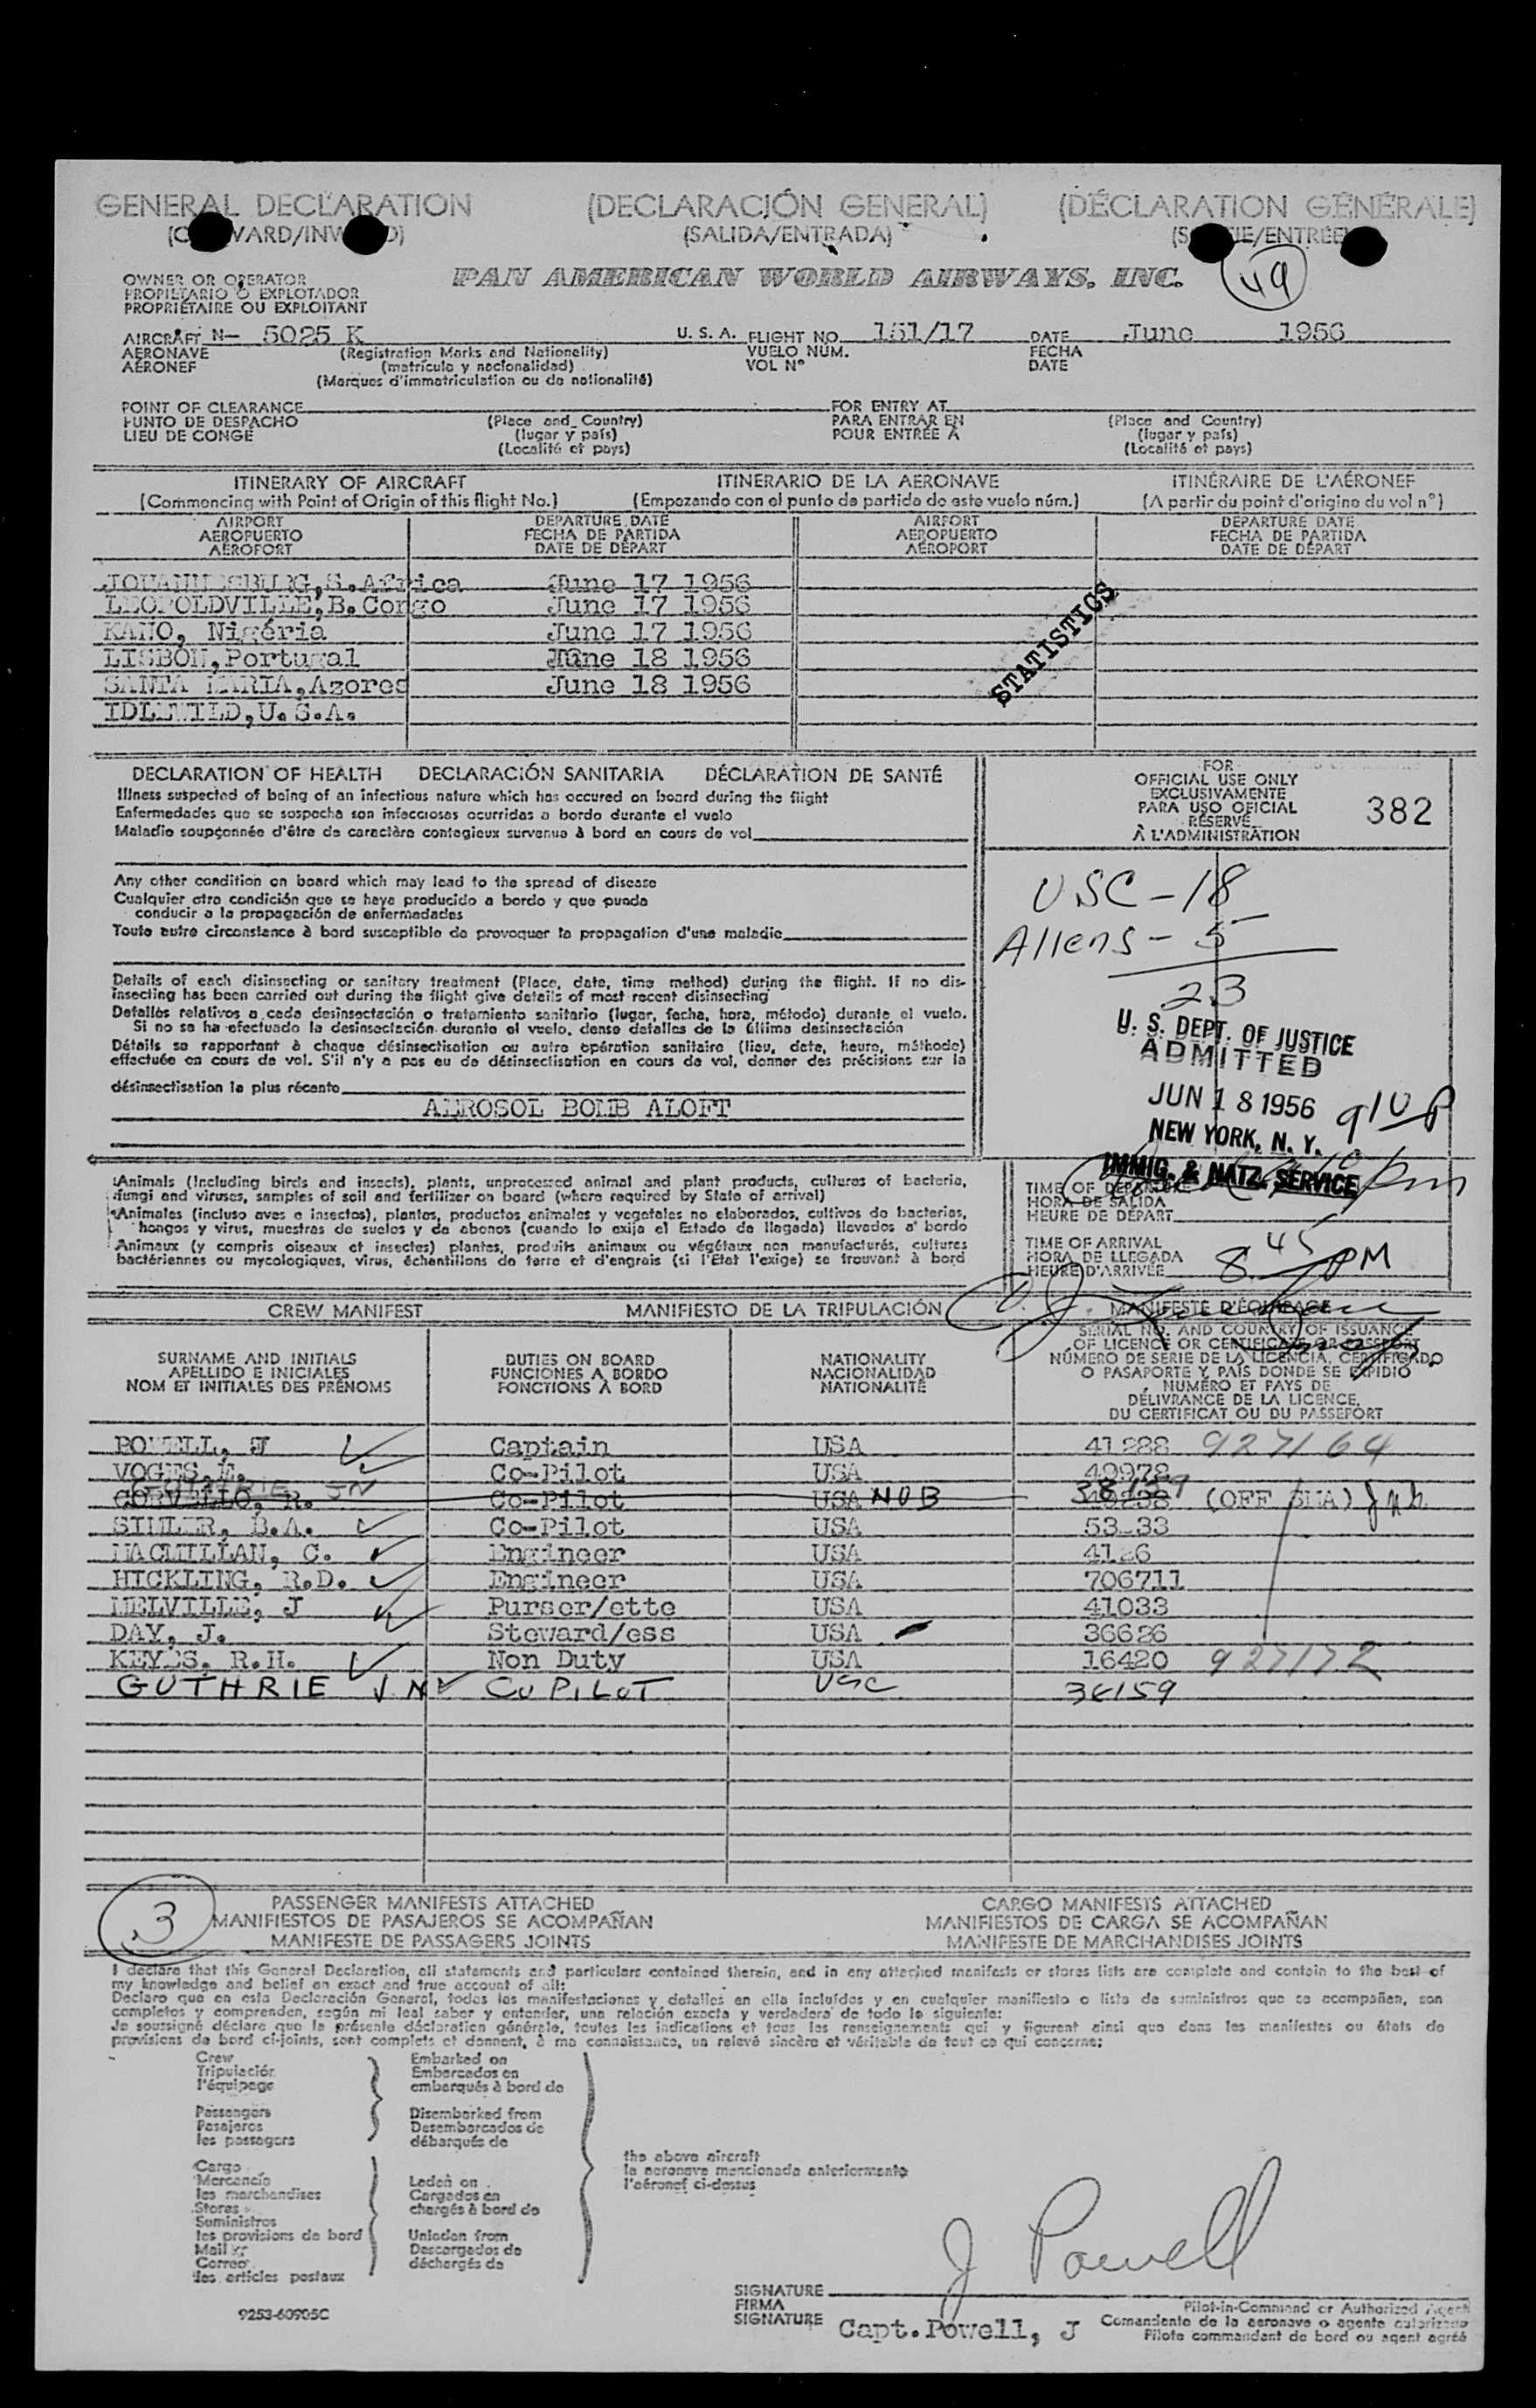 GENERAL DECLARATION (DECLARACIÓN GENERAL) (DÉCLARATION GÉNÉRALE)
(SALIDA/ENTRADA)
OWNER OR OPERATOR PAN AMERICAN WORLD AIRWAYS, INC. 49
PROPIETARIO O EXPLOTADOR
PROPRIÉTAIRE OU EXPLOITANT
AIRCRAFT N- 5025 K U. S. A. FLIGHT NO. 151/17 DATE June 1956
AERONAVE (Registration Marks and Nationality) VUELO NÚM. FECHA
AÉRONEF (matrícula y nacionalidad) VOL Nº DATE
(Marques d'immatriculation ou de nationalité)
POINT OF CLEARANCE FOR ENTRY AT
PUNTO DE DESPACHO (Place and Country) PARA ENTRAR EN (Place and Country)
LIEU DE CONGÉ (lugar y país) POUR ENTRÉE À (lugar y país)
(Localité et pays) (Localité et pays)
ITINERARY OF AIRCRAFT ITINERARIO DE LA AERONAVE ITINÉRAIRE DE L'AÉRONEF
(Commencing with Point of Origin of this flight No.) (Empezando con el punto de partida de este vuelo núm.) (A partir du point d'origine du vol nº)
AIRPORT DEPARTURE DATE AIRPORT DEPARTURE DATE
AEROPUERTO FECHA DE PARTIDA AEROPUERTO FECHA DE PARTIDA
AÉROPORT DATE DE DÉPART AÉROPORT DATE DE DÉPART
JOHANNESBURG, S. Africa June 17 1956
LEOPOLDVILLE, B. Congo June 17 1956
KANO, Nigéria June 17 1956
LISBON, Portugal June 18 1956
SANTA MARIA, Azores June 18 1956
IDLEWILD, U. S. A.
STATISTICS
DECLARATION OF HEALTH DECLARACIÓN SANITARIA DÉCLARATION DE SANTÉ
Illness suspected of being of an infectious nature which has occured on board during the flight
Enfermedades que se sospecha son infecciosas ocurridas a bordo durante el vuelo
Maladie soupçonnée d'être de caractère contagieux survenue à bord en cours de vol
Any other condition on board which may lead to the spread of disease
Cualquier otra condición que se haya producido a bordo y que pueda
conducir a la propagación de enfermedades
Toute autre circonstance à bord susceptible de provoquer la propagation d'une maladie
Details of each disinsecting or sanitary treatment (Place, date, time method) during the flight. If no dis-
insecting has been carried out during the flight give details of most recent disinsecting
Detalles relativos a cada desinsectación o tratamiento sanitario (lugar, fecha, hora, método) durante el vuelo.
Si no se ha efectuado la desinsectación durante el vuelo, dense detalles de la última desinsectación
Détails se rapportant à chaque désinsectisation ou autre opération sanitaire (lieu, date, heure, méthode)
effectuée en cours de vol. S'il n'y a pas eu de désinsectisation en cours de vol, donner des précisions sur la
désinsectisation la plus récente
AEROSOL BOMB ALOFT
FOR
OFFICIAL USE ONLY
EXCLUSIVAMENTE
PARA USO OFICIAL
RÉSERVÉ
À L'ADMINISTRATION
382
USC - 18
Aliens - 5
23
U. S. DEPT. OF JUSTICE
ADMITTED
JUN 18 1956 910 P
NEW YORK, N. Y.
IMMIG. & NATZ. SERVICE
Animals (Including birds and insects), plants, unprocessed animal and plant products, cultures of bacteria,
fungi and viruses, samples of soil and fertilizer on board (where required by State of arrival)
Animales (incluso aves e insectos), plantas, productos animales y vegetales no elaborados, cultivos de bacterias,
hongos y virus, muestras de suelos y de abonos (cuando lo exija el Estado de llegada) llevados a bordo
Animaux (y compris oiseaux et insectes) plantes, produits animaux ou végétaux non manufacturés, cultures
bactériennes ou mycologiques, virus, échantillons de terre et d'engrais (si l'État l'exige) se trouvant à bord
TIME OF DEPARTURE
HORA DE SALIDA
HEURE DE DÉPART
TIME OF ARRIVAL
HORA DE LLEGADA
HEURE D'ARRIVÉE 8 45 PM
CREW MANIFEST MANIFIESTO DE LA TRIPULACIÓN MANIFESTE D'ÉQUIPAGE
SURNAME AND INITIALS DUTIES ON BOARD NATIONALITY SERIAL NO. AND COUNTRY OF ISSUANCE
APELLIDO E INICIALES FUNCIONES A BORDO NACIONALIDAD OF LICENCE OR CERTIFICATE OR PASSPORT
NOM ET INITIALES DES PRÉNOMS FONCTIONS À BORD NATIONALITÉ NÚMERO DE SERIE DE LA LICENCIA, CERTIFICADO
O PASAPORTE Y PAÍS DONDE SE EXPIDIÓ
NUMÉRO ET PAYS DE
DÉLIVRANCE DE LA LICENCE,
DU CERTIFICAT OU DU PASSEPORT
POWELL, J Captain USA 41288 927164
VOGES, E. Co-Pilot USA 49978
GUTHRIE JN
CORVELLO, R. Co-Pilot USA NOB (OFF SHA)
Co-Pilot USA
MACMILLAN, C. Engineer USA
HICKLING, R.D. Engineer USA 706711
MELVILLE, J Purser/ette USA 41033
DAY, J. Steward/ess USA 36626
KEYES, R.H. Non Duty USA 16420 927172
GUTHRIE J N CO PILOT USC
3 PASSENGER MANIFESTS ATTACHED CARGO MANIFESTS ATTACHED
MANIFIESTOS DE PASAJEROS SE ACOMPAÑAN MANIFIESTOS DE CARGA SE ACOMPAÑAN
MANIFESTE DE PASSAGERS JOINTS MANIFESTE DE MARCHANDISES JOINTS
I declare that this General Declaration, all statements and particulars contained therein, and in any attached manifests or stores lists are complete and contain to the best of
my knowledge and belief an exact and true account of all:
Declaro que en esta Declaración General, todas las manifestaciones y detalles en ella incluídos y en cualquier manifiesto o lista de suministros que se acompañan, son
completos y comprenden, según mi leal saber y entender, una relación exacta y verdadera de todo lo siguiente:
Je soussigné déclare que la présente déclaration générale, toutes les indications et tous les renseignements qui y figurent ainsi que dans les manifestes ou états de
provisions de bord ci-joints, sont complets et donnent, à ma connaissance, un relevé sincère et véritable de tout ce qui concerne:
Crew Embarked on
Tripulación Embarcados en
l'équipage embarqués à bord de
Passengers Disembarked from
Pasajeros Desembarcados de
les passagers débarqués de
the above aircraft
la aeronave mencionada anteriormente
l'aéronef ci-dessus
Cargo
Mercancía Laden on
les marchandises Cargados en
Stores chargés à bord de
Suministros
les provisions de bord Unladen from
Mail Descargados de
Correo déchargés de
les articles postaux
J Powell
SIGNATURE
FIRMA Pilot-in-Command or Authorized Agent
SIGNATURE Capt. Powell, J Comandante de la aeronave o agente autorizado
Pilote commandant de bord ou agent agréé
9253-60905C